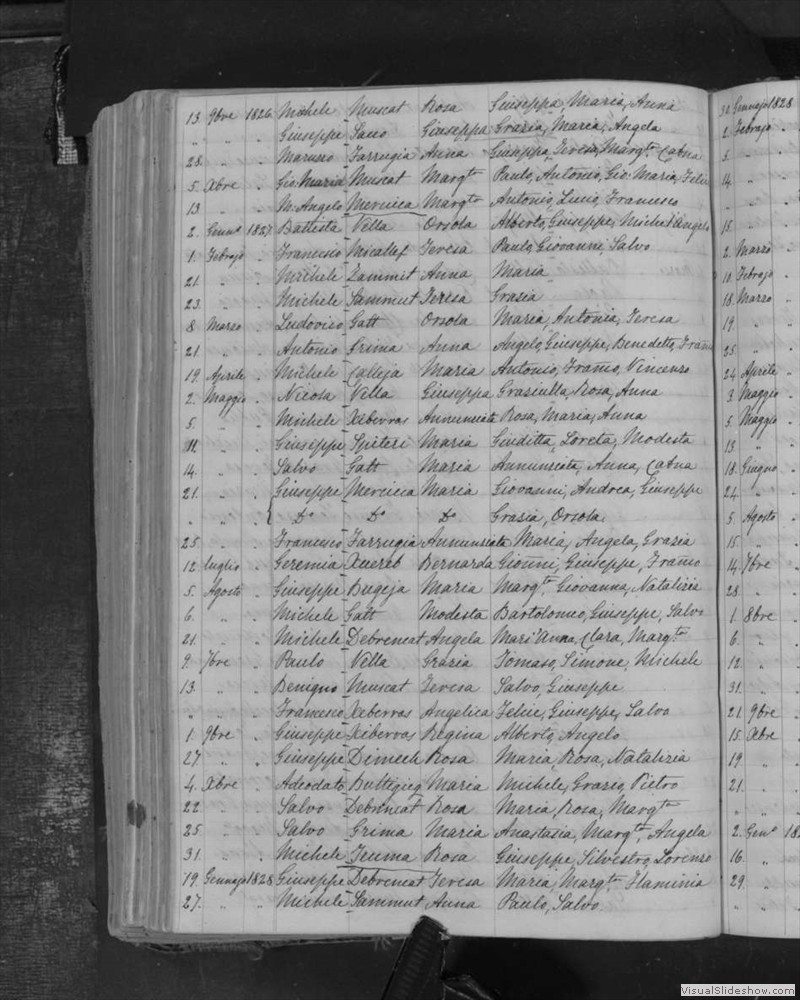 13. 9bre 1826. Michele Muscat Rosa Giuseppa, Maria, Anna
" " " Giuseppe Sacco Giuseppa Grazia, Maria, Angela
28. " " Farrugia Anna Giuseppa, Teresa, Margta, Catna
5. Xbre " Gio: Maria Muscat Margta Paulo, Antonio, Gio: Maria, Felice
13 " " M: Angelo Mercieca Margta Antonio, Lucio, Francesco
2. Genno 1827. Battista Vella Orsola Alberto, Giuseppe, Michel'angelo
1. Febrajo " Francesco Micallef Teresa Paulo, Giovanni, Salvo
21. " " Michele Zammit Anna Maria
23. " " Michele Sammut Teresa Grazia
8 Marzo " Ludovico Gatt Orsola Maria, Antonia, Teresa
21. " " Antonio Grima Anna Angelo, Giuseppe, Benedetto, Franco
19. Aprile " Michele Calleja Maria Antonio, Franco, Vincenzo
2. Maggio " Nicola Vella Giuseppa Graziulla, Rosa, Anna
5. " " Michele Xiberras Annunciata Rosa, Maria, Anna
11. " " Giuseppe Spiteri Maria Giuditta, Loreta, Modesta
14. " " Salvo Gatt Maria Annunciata, Anna, Catna
21. " " Giuseppe Mercieca Maria Giovanni, Andrea, Giuseppe
" " " { Do Do Do Grazia, Orsola
25. " " Francesco Farrugia Annunciata Maria, Angela, Grazia
12. Luglio " Geremia Xuereb Bernarda Gionni, Giuseppe, Franco
5. Agosto " Giuseppe Bugeja Maria Margta, Giovanna, Natalizia
6. " " Michele Gatt Modesta Bartolomeo, Giuseppe, Salvo
21. " " Michele Debrincat Angela Mari'Anna, Clara, Margta
9. 7bre " Paulo Vella Grazia Tomaso, Simone, Michele
13. " " Benigno Muscat Teresa Salvo, Giuseppe
" " " Francesco Xiberras Angelica Felice, Giuseppe, Salvo
1. 9bre " Giuseppe Xiberras Regina Alberto, Angelo
27 " " Giuseppe Dimech Rosa Maria, Rosa, Natalizia
4. Xbre " Adeodato Buttigieg Maria Michele, Grazio, Pietro
22. " " Salvo Debrincat Rosa Maria, Rosa, Margta
25. " " Salvo Grima Maria Anastasia, Margta, Angela
31. " " Michele Rosa Giuseppe, Silvestro, Lorenzo
19. Gennajo 1828 Giuseppe Debrincat Teresa Maria, Margta, Flaminia
27. " " Michele Sammut Anna Paulo, Salvo.
Gennajo 1828
2. Febrajo "
5. "
14. "
" "
15. "
2. Marzo
10. Febrajo
18. Marzo "
19. "
25. "
24 Aprile "
3. Maggio
5. Maggio "
13. "
18. Giugno "
24. "
5. Agosto "
15. "
14. 7bre "
28. "
1. 8bre "
6. "
12. "
31. "
21. 9bre "
15. Xbre "
19 "
21. "
" "
2. Geno 18
16. "
29. "
" "
VisualSlideshow.com